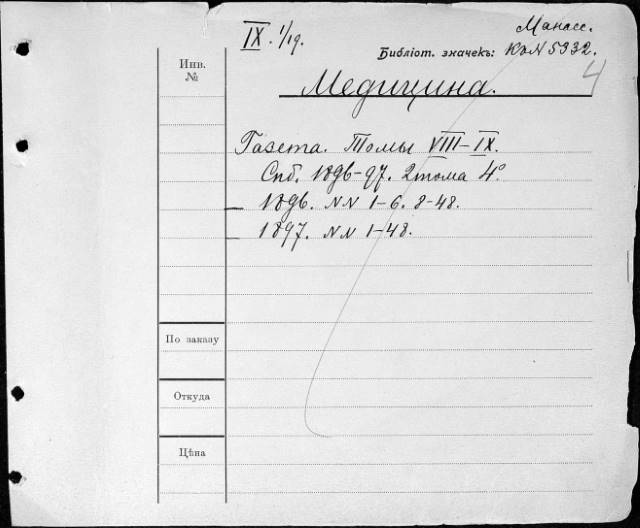 Манасс.
IX. 1/19.
Библіот. значекъ: К.о.N 5932.
4
Инв. №
Медицина.
Газета. Томы VIII–IX.
Спб. 1896–97. 2 тома 4°.
1896. NN 1–6. 8–48.
1897. NN 1–48.
По заказу
Откуда
Цѣна